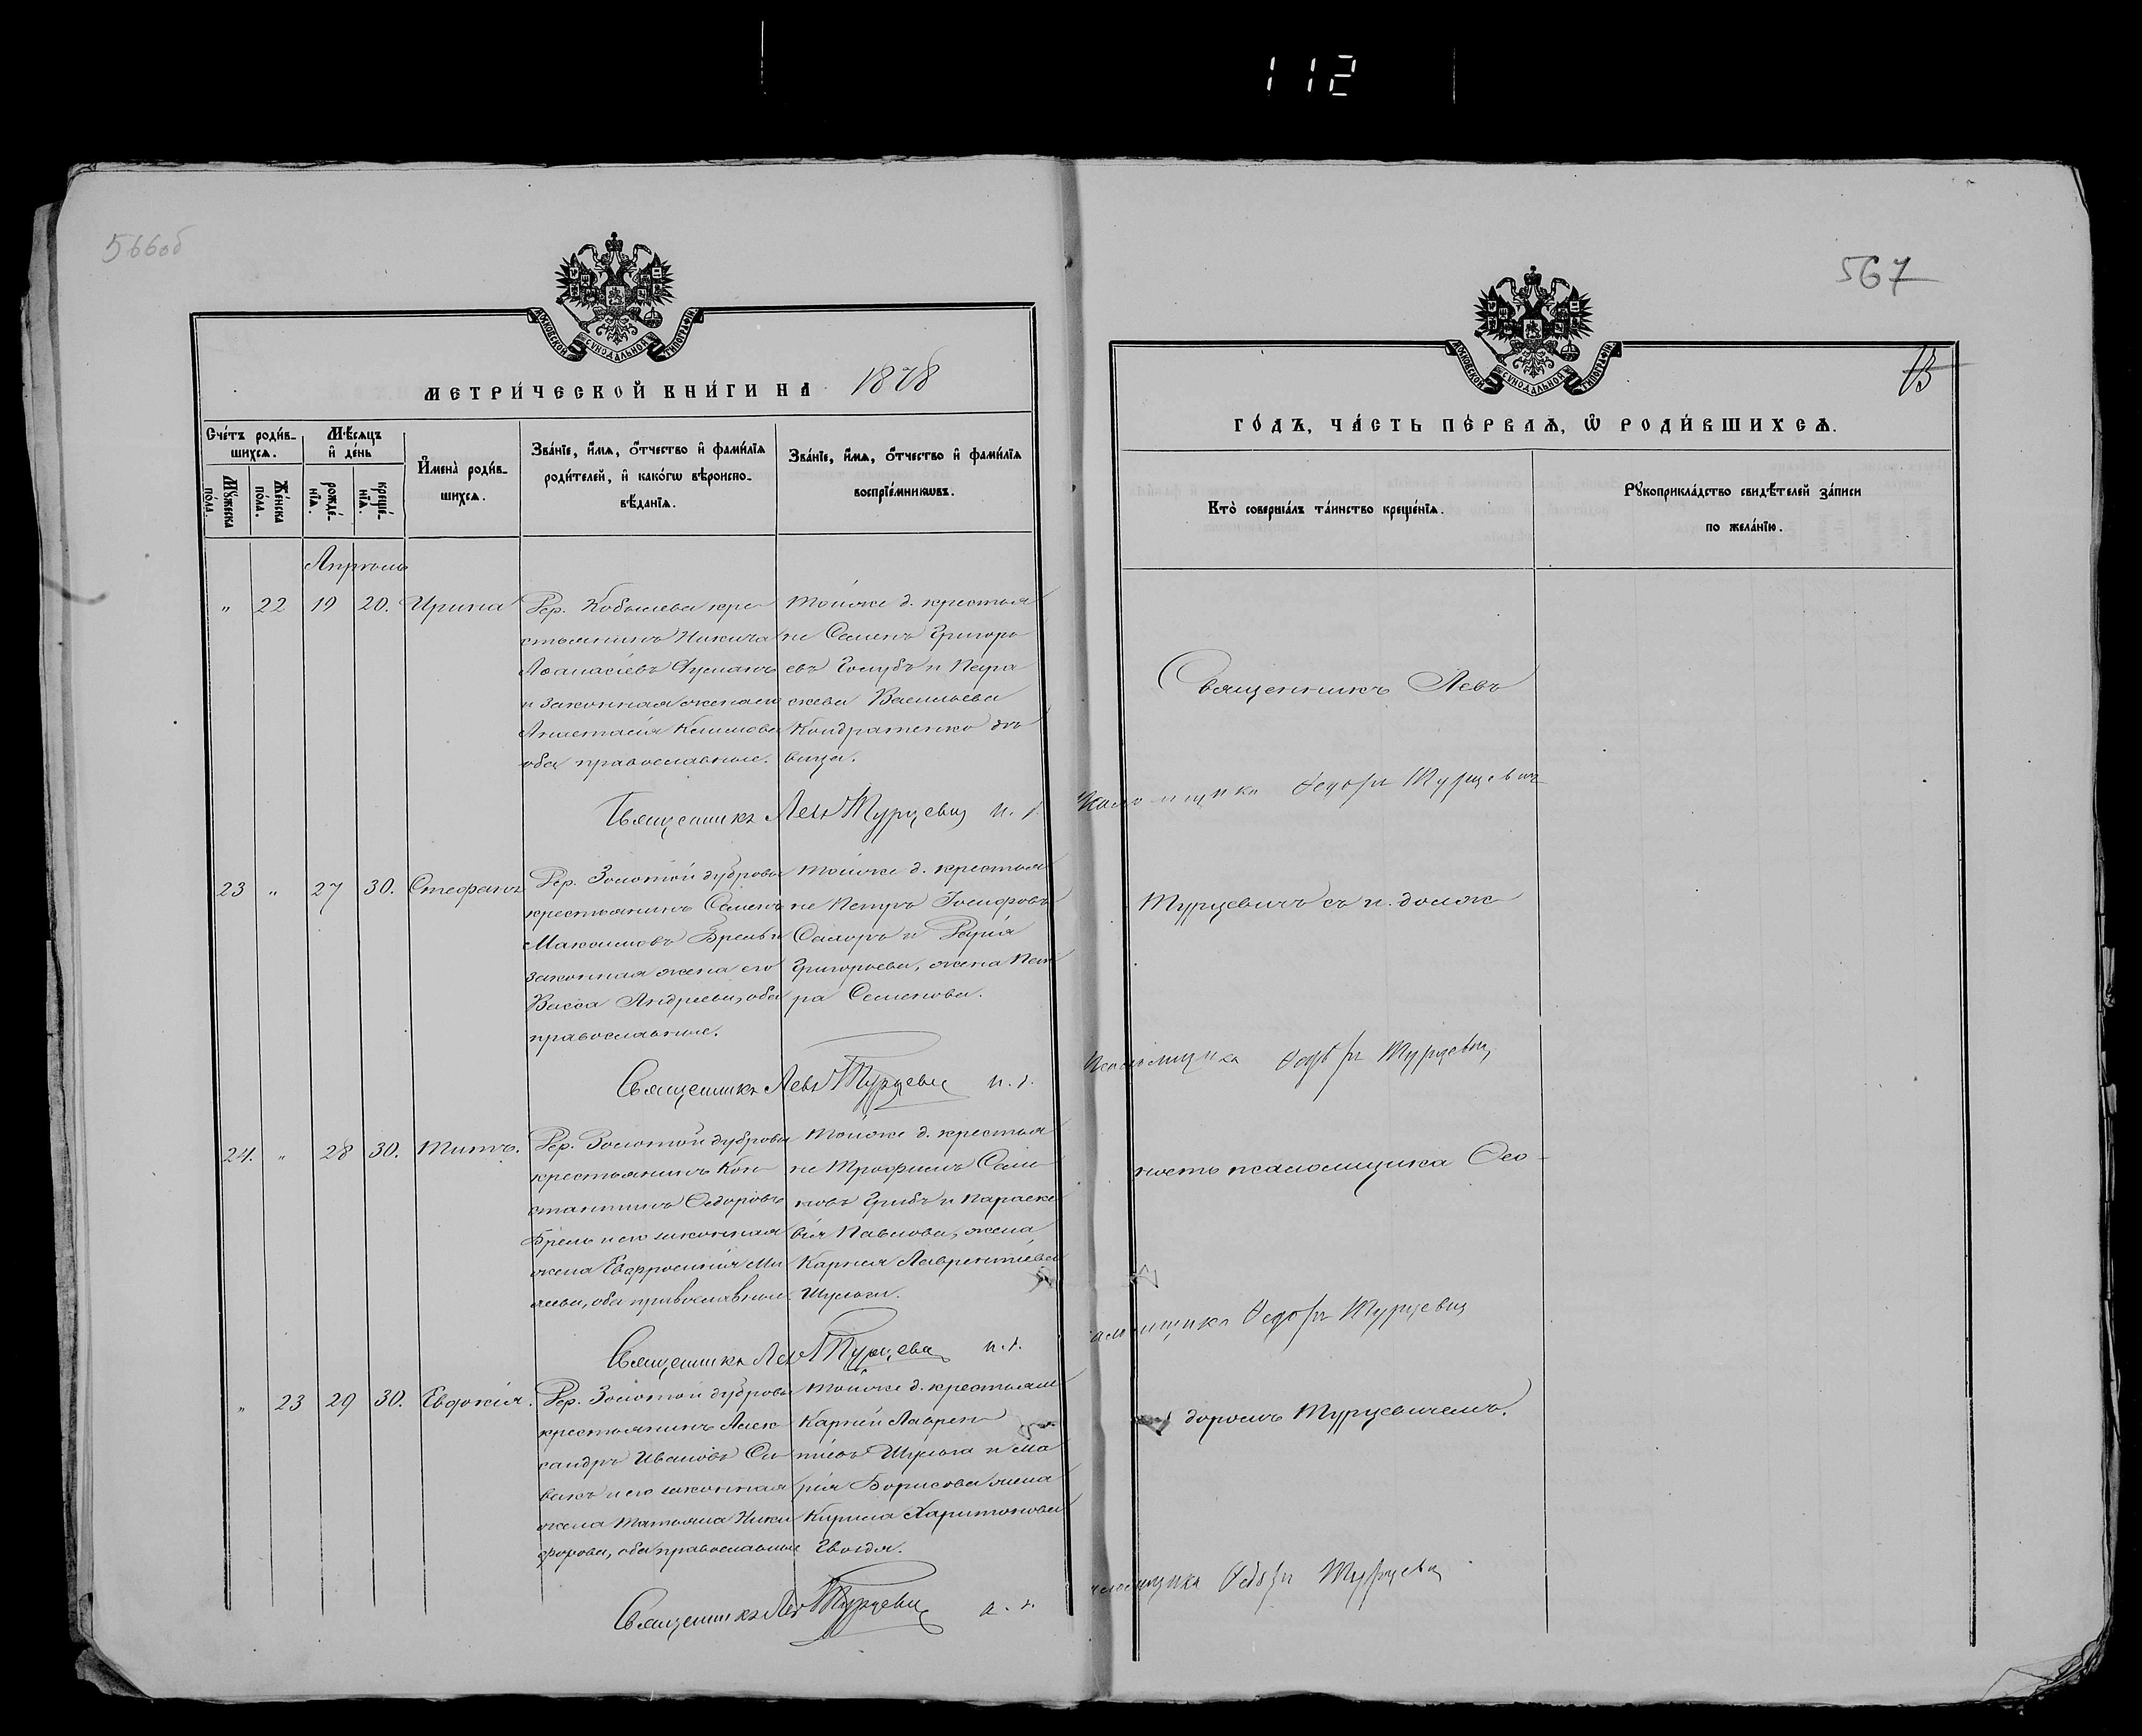 112
566об
МОСКОВСКОЙ СѴНОДАЛЬНОЙ ТИПОГРАФІИ
МЕТРИ́ЧЕСКОЙ КНИ́ГИ НА 1878
Сче́тъ роди́вшихсѧ.
Мꙋ́жеска по́ла.
Же́нска по́ла.
Мѣ́сѧцъ и҆ де́нь
рожде́нїѧ.
креще́нїѧ.
И҆мена̀ роди́вшихсѧ.
Зва́нїе, и҆́мѧ, ѻ҆́тчество и҆ фами́лїѧ
роди́телей, и҆ како́гѡ вѣроиспо-
вѣ́данїѧ.
Зва́нїе, и҆́мѧ, ѻ҆́тчество и҆ фами́лїѧ
воспрїе́мникѡвъ.
Апрѣль
" 22 19 20. Ирина
Дер. Кобылева кре-
стьянинъ Никита
Аѳанасіевъ
и законная жена его
Анастасія Климова
оба православные.
Тойже д. крестья
не Семенъ Григорь
евъ Голубъ и Пара
скева Васильева
Кондратенко дѣ
вица.
Священникъ Левъ Турцевич
23 " 27 30. Стефанъ
Дер. Золотой дубровы
крестьянинъ Семенъ
Максимовъ Брель и
законная жена его
Васса Андреева, оба
православные.
Тойже д. крестья
не Петръ Іосифовъ
и
Григорьева, жена Пет
ра Семенова.
Священникъ Левъ Турцевич
24. " 28 30. Титъ.
Дер. Золотой дубровы
крестьянинъ Кон-
стантинъ Ѳедоровъ
Брель и его законная
жена Евфросинія Ми
оба православные
Тойже д. крестья
не Трофимъ Сам-
Грибъ и Параске
вія Павлова, жена
Карнея Лаврентіева
Шульги.
Священникъ Левъ Турцевич
" 23 29 30. Евдокія.
Дер. Золотой дубровы
крестьянинъ Алек
сандръ Ивановъ
и его законная
жена Татьяна Ники
форова, оба православные
Тойже д. крестьяне
Карней Лаврен
тіевъ Шульга и Ма
рія Борисова жена
Кирила Харитонова
Гвоздя.
Священникъ Левъ Турцевич
567
МОСКОВСКОЙ СѴНОДАЛЬНОЙ ТИПОГРАФІИ
ГО́ДЪ, ЧА́СТЬ ПЕ́РВАѦ, Ѽ РОДИ́ВШИХСѦ.
Кто̀ соверша́лъ та́инство креще́нїѧ.
Рꙋкоприкла́дство свидѣ́телей за́писи
по жела́нїю.
Священникъ Левъ
Ѳедоръ Турцевич
Турцевичъ съ и. долж
Ѳедоръ Турцевич
ность псаломщика Ѳео-
Ѳедоръ Турцевич
доромъ Турцевичемъ.
Ѳедоръ Турцевич